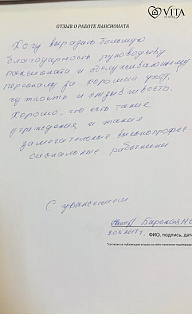 VITA
ОТЗЫВ О РАБОТЕ ПАНСИОНАТА
Хочу выразить большую
благодарность руководству
пансионата и обслуживающему
персоналу за хороший уход,
чуткость и отзывчивость.
Хорошо, что есть такие
учреждения и такие
замечательные высокопрофес-
сиональные работники
С уважением
ФИО, подпись, дата